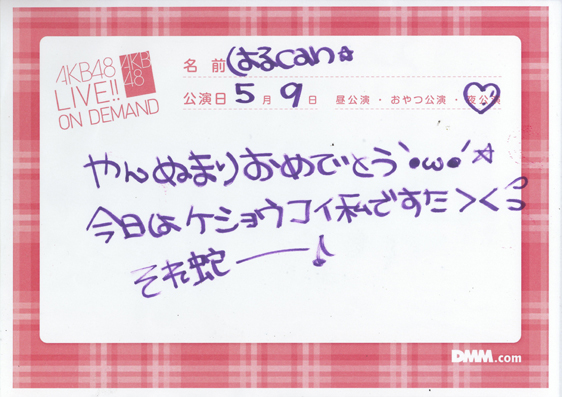 AKB48
LIVE!!
ON DEMAND
AKB
48
名 前 はるcan☆
公演日 5 月 9 日 昼公演・おやつ公演・夜公演
やんぬまりおめでとう`•ω•´☆
今日はケショウコイ私ですた><
それ蛇――♪
DMM.com